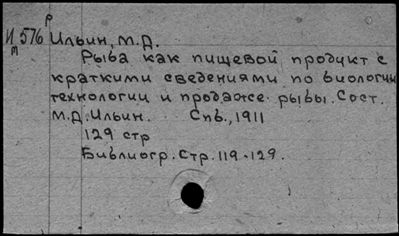 Р
И 576 Ильин, М.Д.
т
Рыба как пищевой продукт с
краткими сведениями по биологии
технологии и продаже рыбы. Сост.
М.Д. Ильин. Спб., 1911
129 стр
Библиогр. Стр. 119-129.